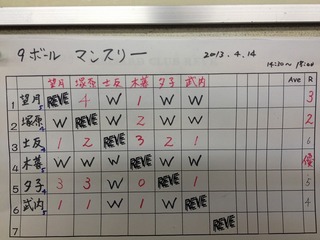 9ボール マンスリー 2013.4.14
14:30~18:00
望月 塚原 士反 木暮 夕子 武内 Ave R
1 望月 REVE 4 W 1 W W 3
2 塚原 W REVE W 2 W W 2
3 士反 1 2 REVE 3 2 1 6
4 木暮 W W W REVE W W 優
5 夕子 3 3 W 0 REVE 1 5
6 武内 1 1 W 1 W REVE 4
7 REVE